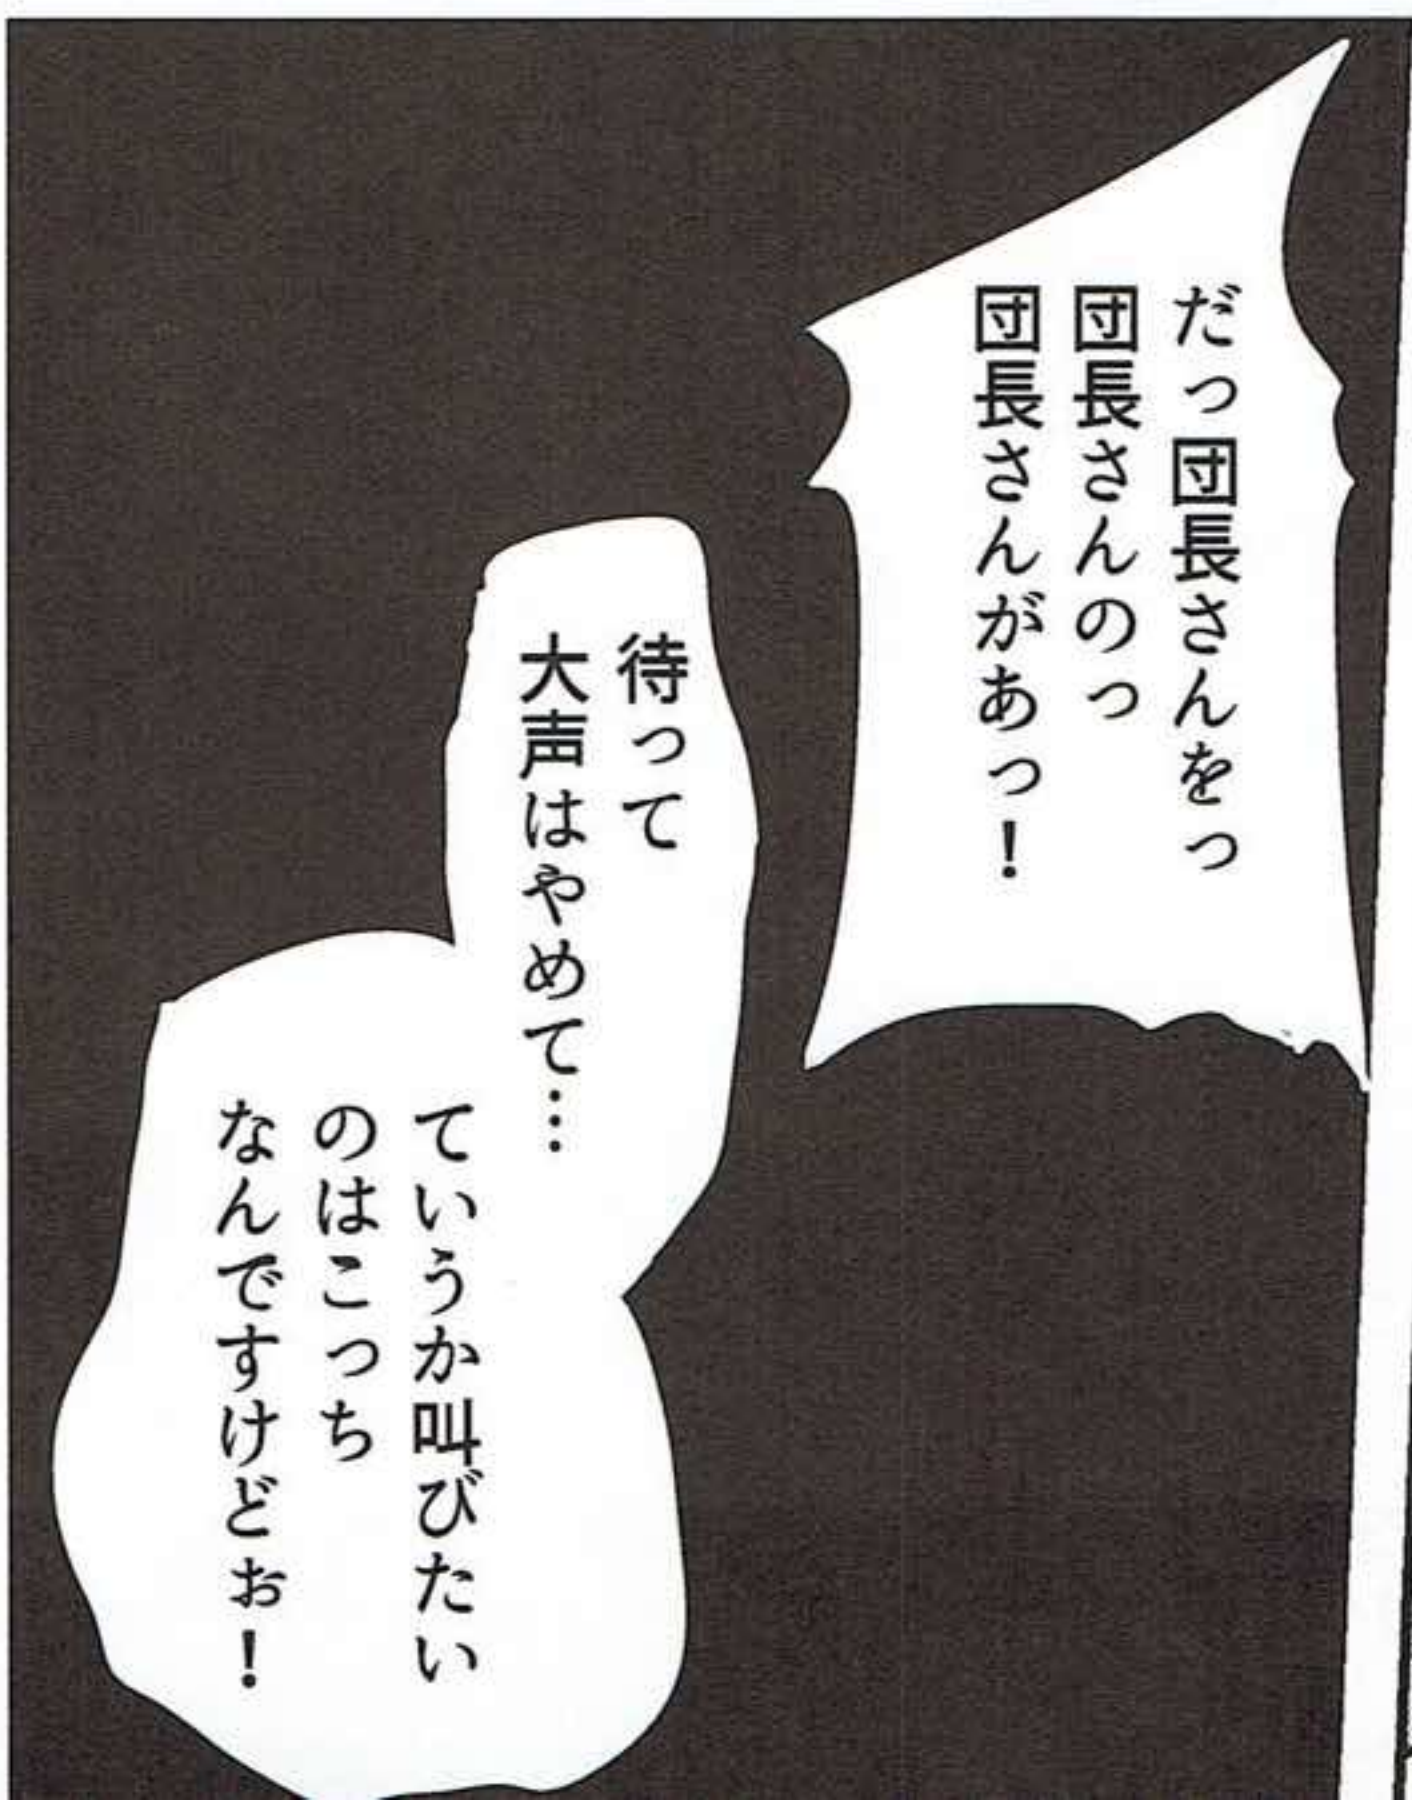 だっ団長さんをっ
団長さんのっ
団長さんがあっ！
待って
大声はやめて…
ていうか叫びたい
のはこっち
なんですけどぉ！